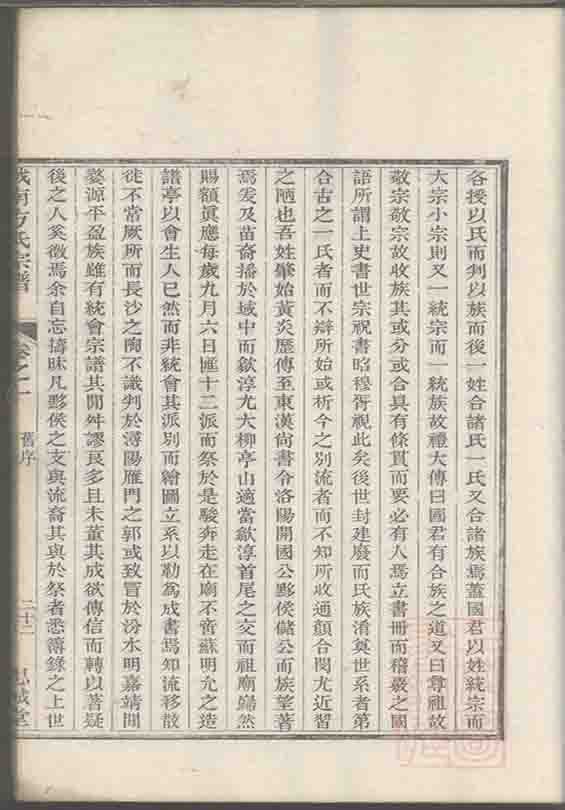 各授以氏而判以族而後一姓合諸氏一氏又合諸族焉蓋國君以姓統宗而
大宗小宗則又一統宗而一統族故禮大傳曰國君有合族之道又曰尊祖故
敬宗敬宗故收族其或分或合具有條貫而要必有人焉立書冊而稽嚴之國
語所謂上史書世宗祝書昭穆胥視此矣後世封建廢而氏族淆奠世系者第
合古之一氏者而不辯所始或析今之別流者而不知所收通顏合閔尤近習
之陋也吾姓肇始黃炎歷傳至東漢尚書令洛陽開國公黟侯儲公而族望著
焉爰及苗裔播於域中而歙淳尤大柳亭山適當歙淳首尾之交而祖廟巋然
賜額眞應每歲九月六日匯十二派而祭於是駿奔走在廟不啻蘇明允之造
譜亭以會生人已然而非統會其派別而繪圖立系以勒爲成書焉知流移散
徙不當厥所而長沙之陶不識判於潯陽雁門之郭或致冒於汾水明嘉靖間
婺源平盈族雖有統會宗譜其閒舛謬良多且未董其成欲傳信而轉以著疑
後之人奚徵焉余自忘檮昧凡黟侯之支與流裔其與於祭者悉簿錄之上世
城南方氏宗譜
卷之一
舊序
二十二
思誠堂